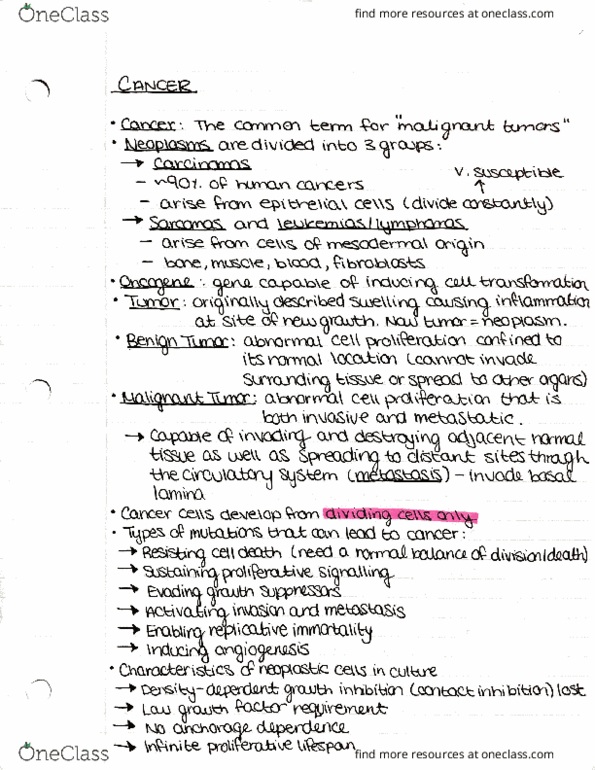 OneClass
find more resources at oneclass.com
CANCER
• Cancer: The common term for "malignant tumors"
• Neoplasms are divided into 3 groups:
→ Carcinomas
v. susceptible
- ~90% of human cancers
↑
- arise from epithelial cells (divide constantly)
→ Sarcomas and leukemias/lymphomas
- arise from cells of mesodermal origin
- bone, muscle, blood, fibroblasts
• Oncogene: gene capable of inducing cell transformation
• Tumor: originally described swelling causing inflammation
at site of new growth. Now tumor = neoplasm.
• Benign Tumor: abnormal cell proliferation confined to
its normal location (cannot invade
surrounding tissue or spread to other organs)
• Malignant Tumor: abnormal cell proliferation that is
both invasive and metastatic.
→ Capable of invading and destroying adjacent normal
tissue as well as spreading to distant sites through
the circulatory system (metastasis) - invade basal
lamina
• Cancer cells develop from dividing cells only.
• Types of mutations that can lead to cancer:
→ Resisting cell death (need a normal balance of division/death)
→ Sustaining proliferative signalling
→ Evading growth suppressors
→ Activating invasion and metastasis
→ Enabling replicative immortality
→ Inducing angiogenesis
• Characteristics of neoplastic cells in culture
→ Density-dependent growth inhibition (contact inhibition) lost
→ Low growth factor requirement
→ No anchorage dependence
→ Infinite proliferative lifespan
OneClass
find more resources at oneclass.com